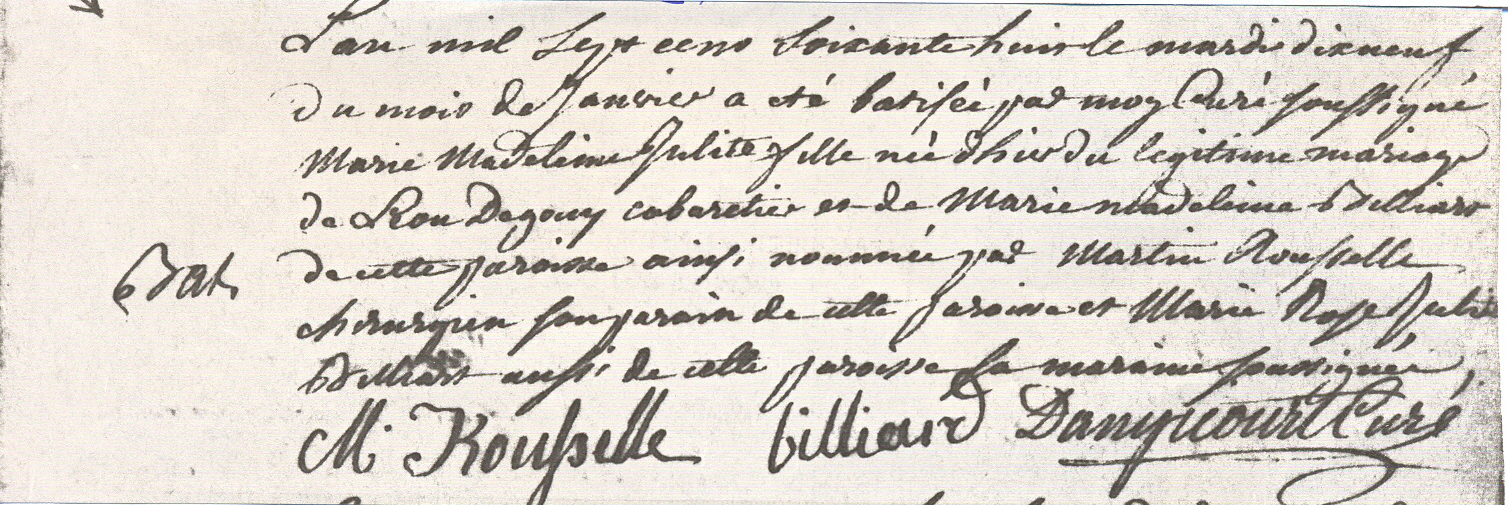 L'an mil sept cens soixante huit le mardi dixneuf
du mois de Janvier a été batisée par moy Curé soussigné
Marie Madeleine Julite fille née d'hier du legitime mariage
de Leon Degouy cabaretier et de Marie madeleine Billiart
Bat. de cette paroisse ainsi nommée par Martin Rousselle
chirurgien son parain de cette paroisse et Marie Rose Julite
Billiart aussi de cette paroisse sa maraine soussignés,
M Rousselle billiard Curé